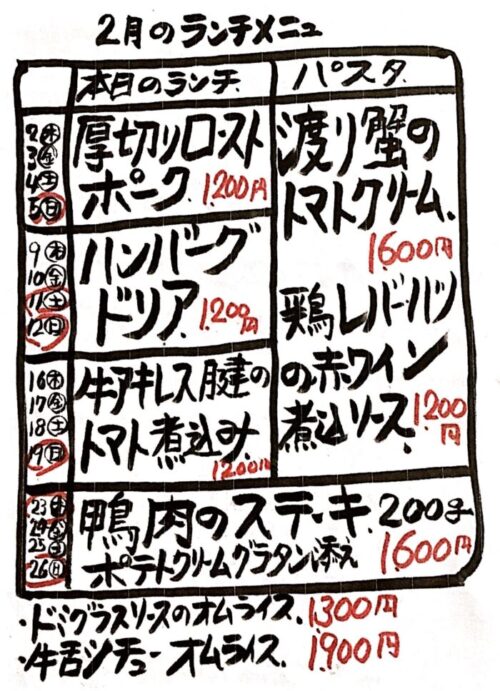 2月のランチメニュー
本日のランチ. パスタ.
2㊍
3㊎
4㊏
5㊐
厚切りロースト
ポーク. 1200円
9㊍
10㊎
11㊏
12㊐
ハンバーグ
ドリア. 1200円
16㊍
17㊎
18㊏
19㊐
牛アキレス腱の
トマト煮込み.
1200円
渡り蟹の
トマトクリーム.
1600円
鶏レバー・ハツ
の赤ワイン
煮込ソース. 1200円
23㊍
24㊎
25㊏
26㊐
鴨肉のステーキ.200g
ポテトクリームグラタン添え 1600円
・ドミグラスソースのオムライス. 1300円
・牛舌シチューオムライス. 1900円